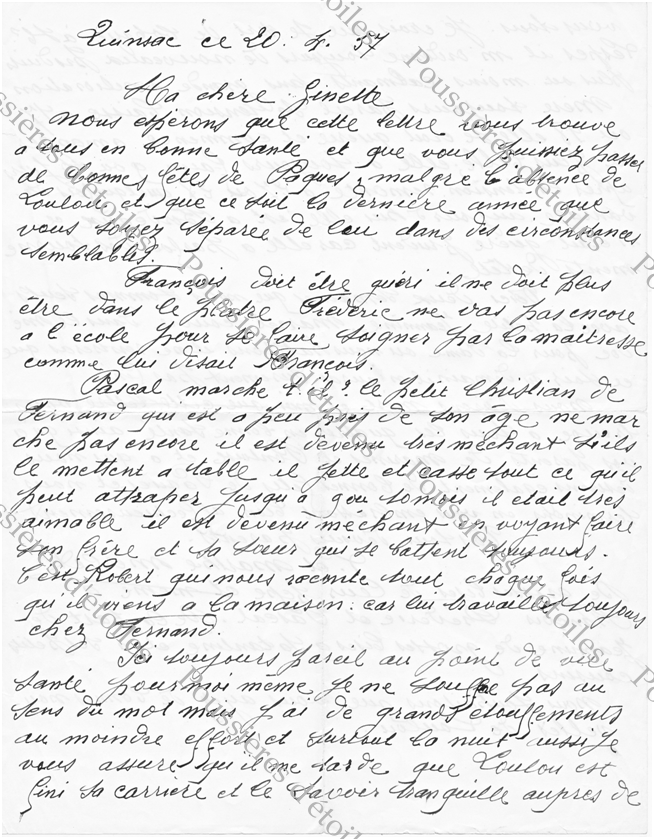 Quinsac ce 20. 4. 57
Ma chère Ginette
Nous espérons que cette lettre vous trouve
a tous en bonne santé et que vous puissiez passer
de bonnes fêtes de Paques, malgré l'absence de
Loulou et que ce soit la dernière année que
vous soyez séparée de lui dans des circonstances
semblables.
François doit être guéri il ne doit plus
être dans le platre Fréderic ne vas pas encore
a l'école pour se faire soigner par la maitresse
comme lui disait François.
Pascal marche t'il? le petit Christian de
Fernand qui est a peu près de son âge ne mar
che pas encore il est devenu très méchant s'ils
le mettent a table il jette et casse tout ce qu'il
peut attraper jusqu'a 10 mois il etait très
aimable il est devenu méchant en voyant faire
son frère et sa sœur qui se battent toujours.
C'est Robert qui nous raconte tout chaque fois
qu'il viens a la maison: car lui travaille toujours
chez Fernand.
Ici toujours pareil au point de vue
santé pour moi même je ne souffre pas au
sens du mot mais j'ai de grands étouffements
au moindre effort et surtout la nuit aussi je
vous assure qu'il me tarde que Loulou est
fini sa carrière et le savoir tranquille aupres de
Poussières d'étoiles